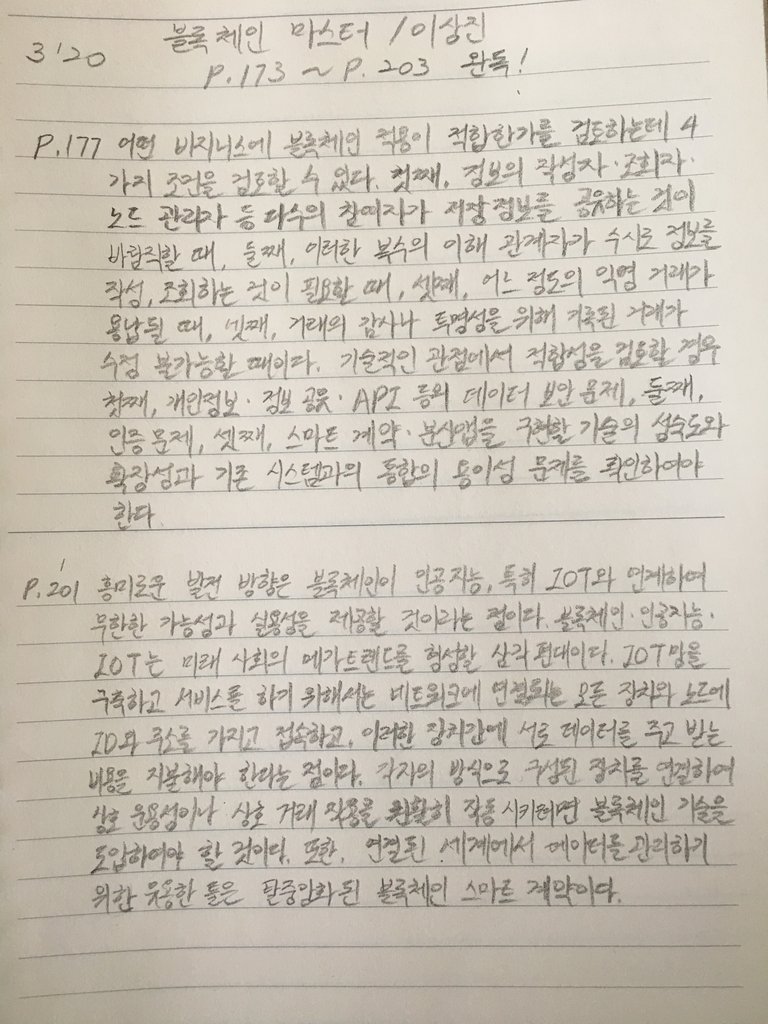 3/20 블록체인 마스터 / 이상진
P.173 ~ P. 203 완독!
P.177 어떤 비지니스에 블록체인 적용이 적합한가를 검토하는데 4
가지 조건을 검토할 수 있다. 첫째, 정보의 작성자·조회자·
노드 관리자 등 다수의 참여자가 저장 정보를 공유하는 것이
바람직할 때, 둘째, 이러한 복수의 이해 관계자가 수시로 정보를
작성, 조회하는 것이 필요한 때, 셋째, 어느 정도의 익명 거래가
용납될 때, 넷째, 거래의 감사나 투명성을 위해 기록된 거래가
수정 불가능할 때이다. 기술적인 관점에서 적합성을 검토할 경우
첫째, 개인정보·정보 공유·API 등의 데이터 보안 문제, 둘째,
인증 문제, 셋째, 스마트 계약·분산앱을 구현할 기술의 성숙도와
확장성과 기존 시스템과의 통합의 용이성 문제를 확인하여야
한다
P.201 흥미로운 발전 방향은 블록체인이 인공지능, 특히 IOT와 연계하여
무한한 가능성과 실용성을 제공할 것이라는 점이다. 블록체인·인공지능·
IOT는 미래 사회의 메가트렌드를 형성할 삼각 편대이다. IOT망을
구축하고 서비스를 하기 위해서는 네트워크에 연결되는 모든 장치와 노드에
ID와 주소를 가지고 접속하고, 이러한 장치간에 서로 데이터를 주고 받는
비용을 지불해야 한다는 점이다. 각자의 방식으로 구성된 장치를 연결하여
상호 운용성이나 상호 거래 작용를 원활히 작동 시키려면 블록체인 기술을
도입하여야 할 것이다. 또한, 연결된 세계에서 데이터를 관리하기
위한 유용한 툴은 탈중앙화 된 블록체인 스마트 계약이다.